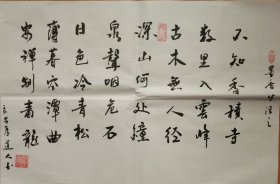 不知香積寺
數里入雲峰
古木無人径
深山何處鐘
泉聲咽危石
日色冷青松
薄暮空潭曲
安禅制毒龍